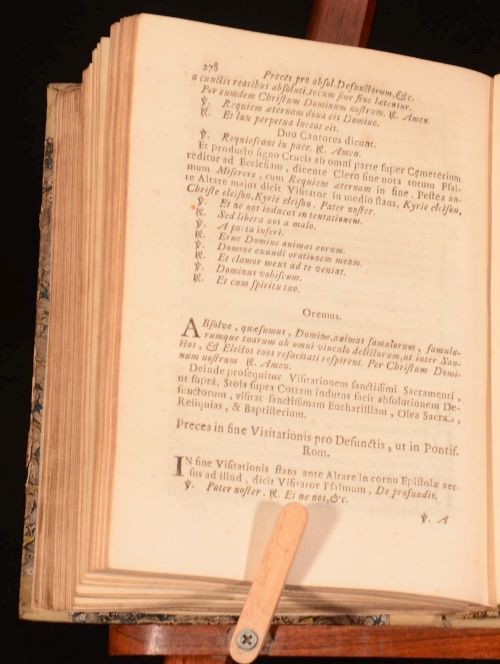 278
Preces pro absol. Defunctorum, &c.
a cunctis reatibus absoluti, tecum sine fine lætentur.
Per eumdem Christum Dominum nostrum. ℟. Amen.
℣. Requiem æternam dona eis Domine.
℟. Et lux perpetua luceat eis.
Duo Cantores dicunt.
℣. Requiescant in pace. ℟. Amen.
Et producto signo Crucis ab omni parte super Cœmeterium
reditur ad Ecclesiam, dicente Clero sine nota totum Psal-
mum Miserere, cum Requiem æternam in fine. Postea an-
te Altare majus dicit Visitator in medio stans, Kyrie eleison,
Christe eleison, Kyrie eleison. Pater noster.
℣. Et ne nos inducas in tentationem.
℟. Sed libera nos a malo.
℣. A porta inferi.
℟. Erue Domine animas eorum.
℣. Domine exaudi orationem meam.
℟. Et clamor meus ad te veniat.
℣. Dominus vobiscum.
℟. Et cum spiritu tuo.
Oremus.
ABsolve, quæsumus, Domine, animas famulorum, famula-
rumque tuarum ab omni vinculo delictorum, ut inter San-
ctos, & Electos tuos resuscitati respirent. Per Christum Domi-
num nostrum ℟. Amen.
Deinde prosequitur Visitationem sanctissimi Sacramenti,
ut supra, Stola supra Cottam indutus facit absolutionem De-
functorum, visitat sanctissimam Eucharistiam, Olea Sacra,
Reliquias, & Baptisterium.
Preces in fine Visitationis pro Defunctis, ut in Pontif.
Rom.
IN fine Visitationis stans ante Altare in cornu Epistolæ ver-
sus ad illud, dicit Visitator Psalmum, De profundis.
℣. Pater noster. ℟. Et ne nos, &c.
℣. A